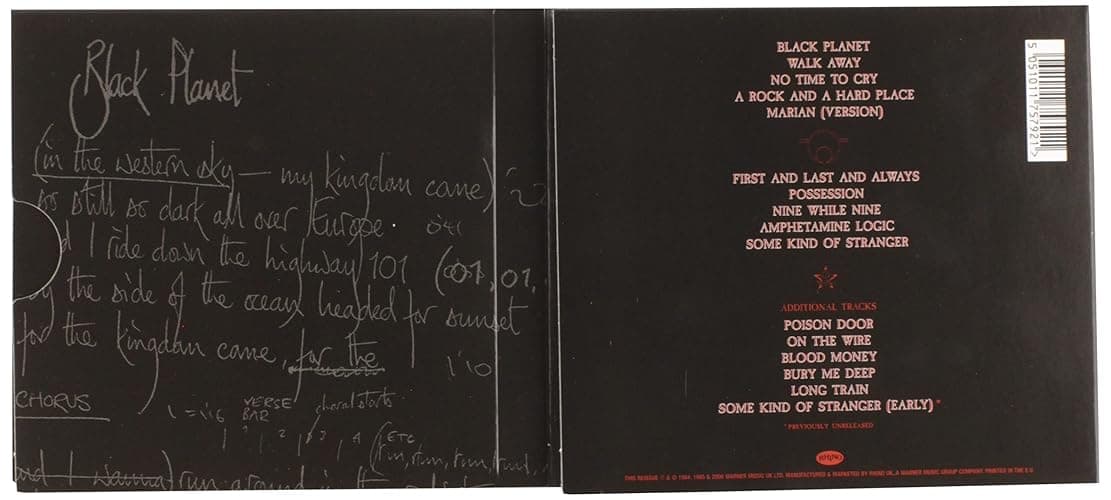 Black Planet
(in the western sky — my kingdom come)
so still so dark all over Europe
I ride down the highway 101
the side of the ocean headed for sunset
for the kingdom come, for the
1'10
CHORUS
VERSE
BAR
chorus starts
1 2 3 4 (ETC
run, run, run
run around in the
BLACK PLANET
WALK AWAY
NO TIME TO CRY
A ROCK AND A HARD PLACE
MARIAN (VERSION)
FIRST AND LAST AND ALWAYS
POSSESSION
NINE WHILE NINE
AMPHETAMINE LOGIC
SOME KIND OF STRANGER
ADDITIONAL TRACKS
POISON DOOR
ON THE WIRE
BLOOD MONEY
BURY ME DEEP
LONG TRAIN
SOME KIND OF STRANGER (EARLY)*
*PREVIOUSLY UNRELEASED
RHINO
THIS REISSUE ℗ & © 1984, 1985 & 2006 WARNER MUSIC UK LTD. MANUFACTURED & MARKETED BY RHINO UK, A WARNER MUSIC GROUP COMPANY. PRINTED IN THE E.U.
5 051011 757921 >